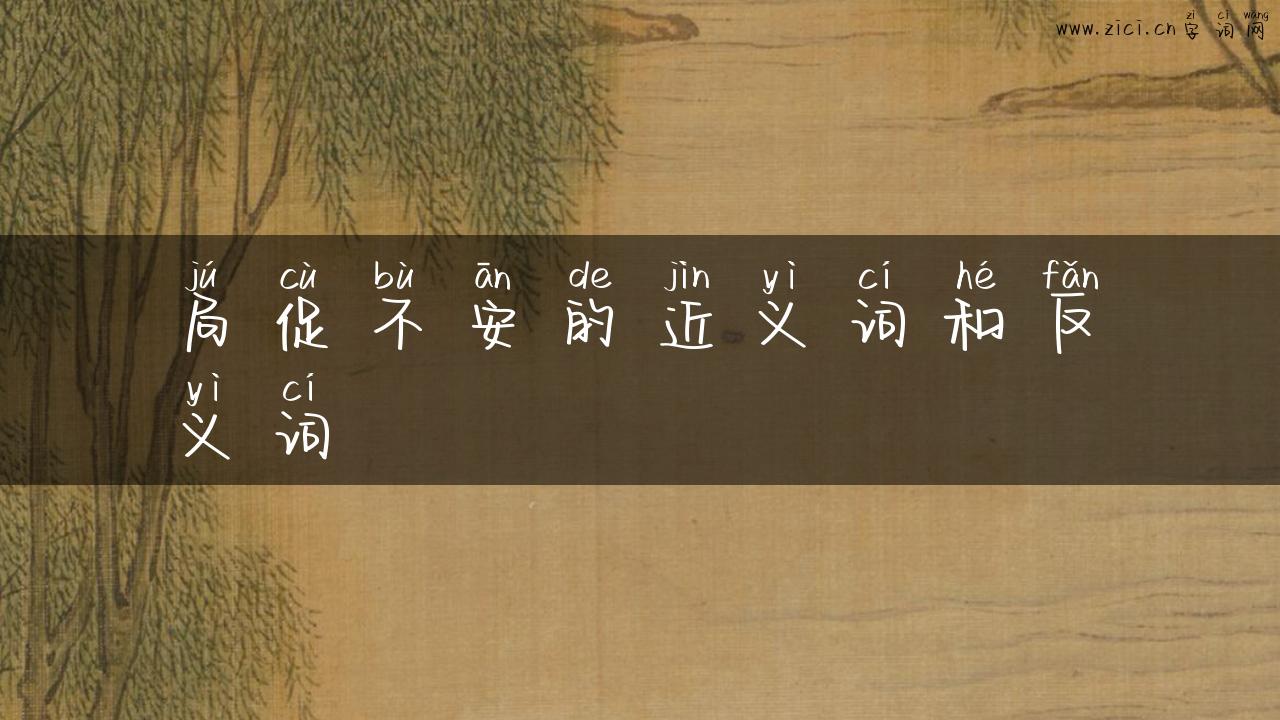 zì cí wǎng
www.zici.cn字词网
jú cù bù ān de jìn yì cí hé fǎn
局促不安的近义词和反
yì cí
义词